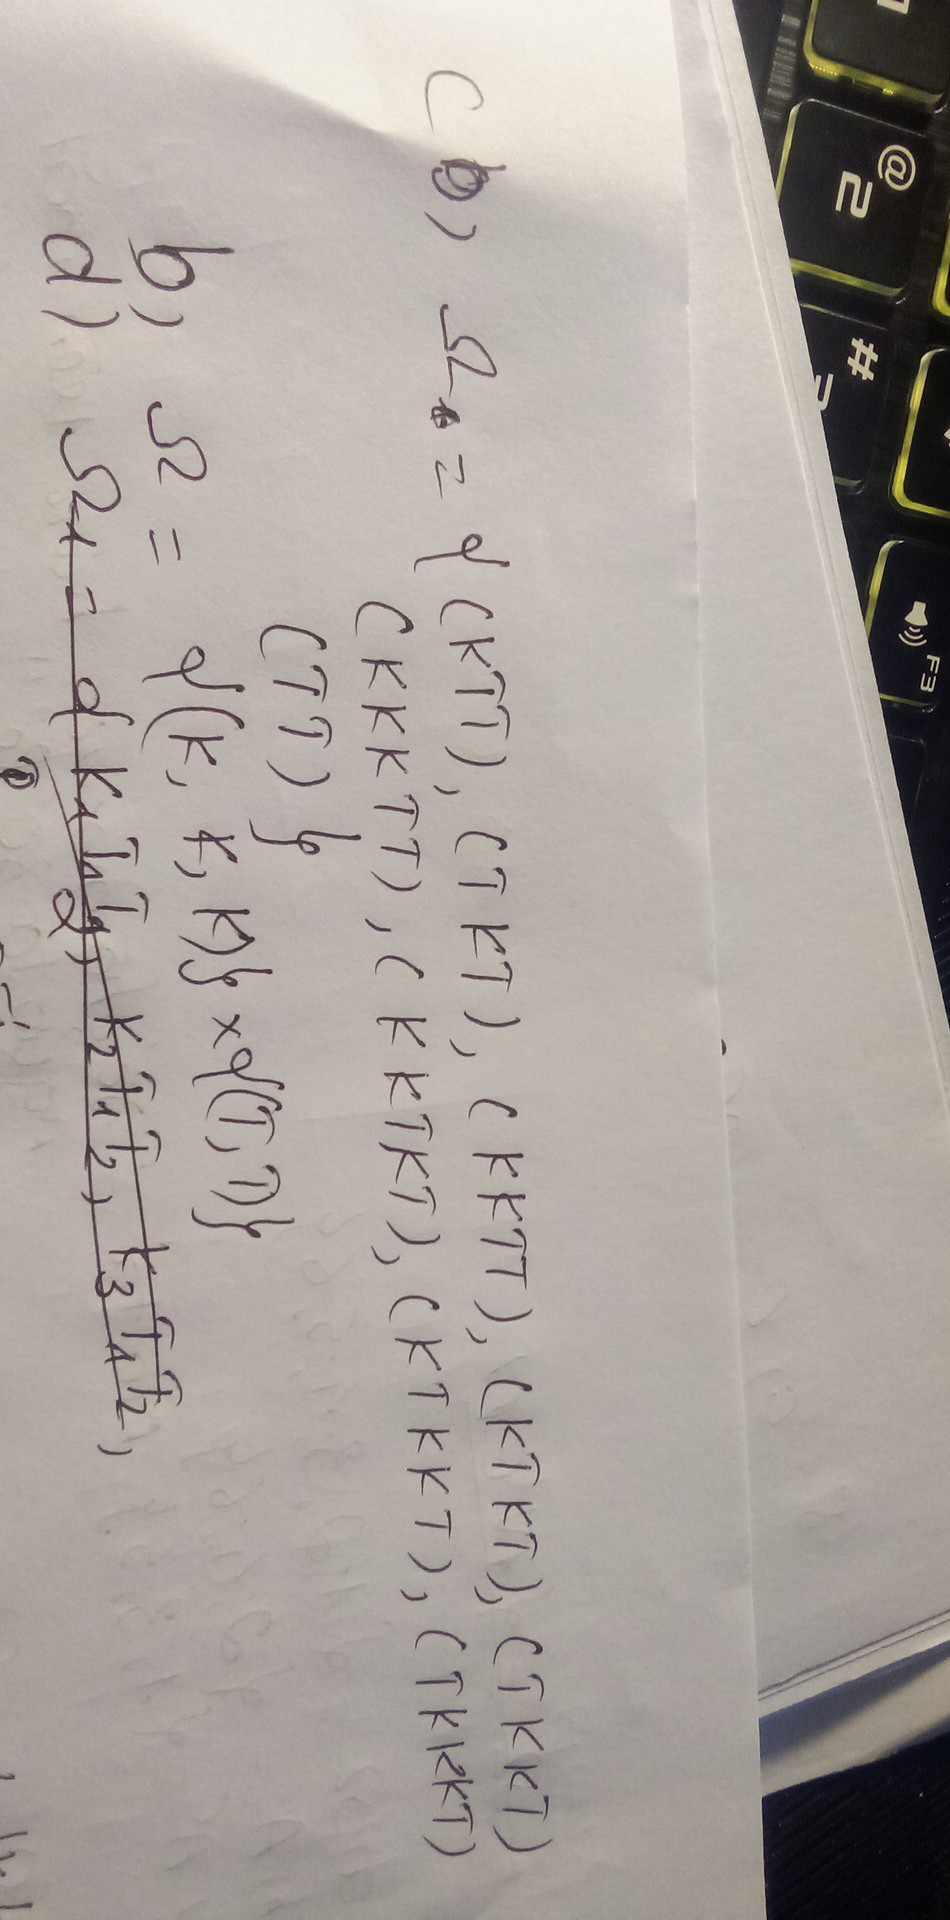 @
2
#
3
F3
c b) Ω = {(KTT), (TKT), (KKTT), (KTKT), (TKKT)
(KKKTT), (KKTKT), (KTKKT), (TKKKT)
(TT)}
b) Ω = {(K, K, K)} × {(T, T)}
d) Ω₁ = { K₁T₁T₂, K₂T₁T₂, K₃T₁T₂,